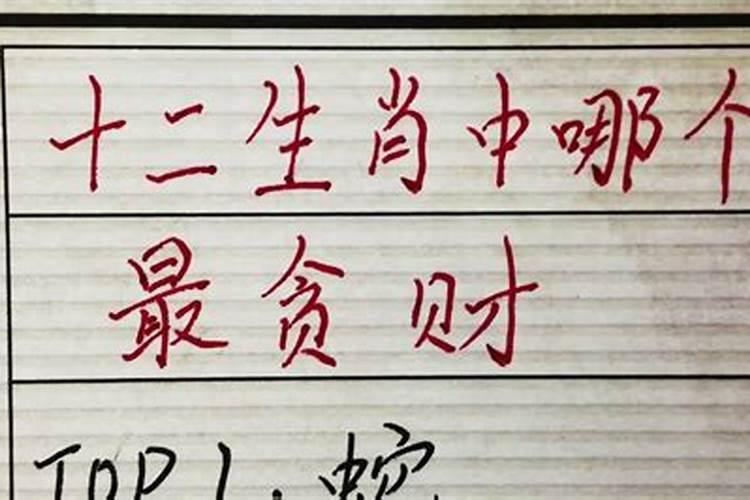 十二生肖中哪个
最贪财
TOP1.蛇